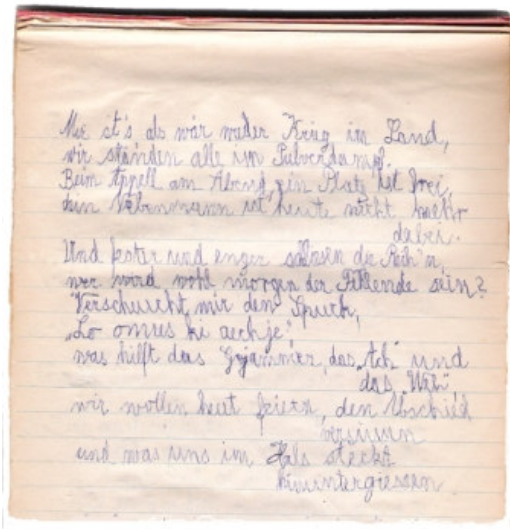 Mir ist's als wär wieder Krieg im Land,
wir ständen alle im Pulverdampf.
Beim Appell am Abend, ein Platz ist frei,
dein Nebenmann ist heute nicht mehr
dabei.
Und fester und enger schliesen die Reih'n,
wer wird wohl morgen der Fehlende sein?
Verscheucht mir den Spuck,
was hilft das Gejammer, das „Ach" und
das „Weh"
wir wollen heut feiern, den Abschied
und was uns im Hals steckt
hinuntergiessen